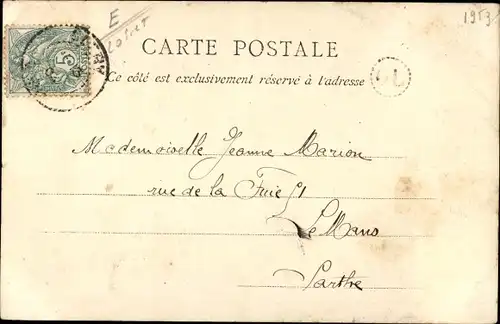 E
Loiret
1953
CARTE POSTALE
Ce côté est exclusivement réservé à l'adresse
5
Mademoiselle Jeanne Marion
rue de la Fuie 51
Le Mans
Sarthe